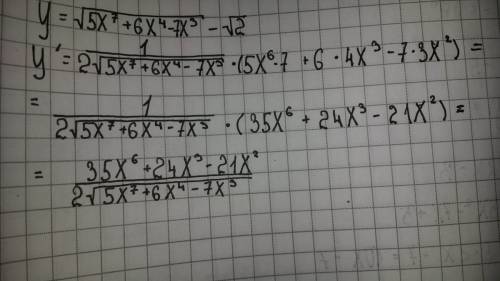 y = √(5x⁷ + 6x⁴ - 7x³) - √2
y' = 1/(2√(5x⁷ + 6x⁴ - 7x³)) · (5x⁶·7 + 6·4x³ - 7·3x²) =
= 1/(2√(5x⁷ + 6x⁴ - 7x³)) · (35x⁶ + 24x³ - 21x²) =
= (35x⁶ + 24x³ - 21x²)/(2√(5x⁷ + 6x⁴ - 7x³))